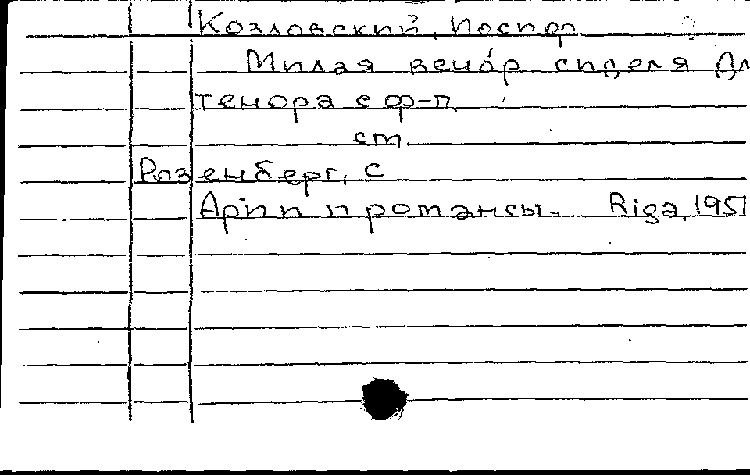 Козловский, Иосиф
Милая вечор сидела Дл
тенора с ф-п.
ст.
Розенберг, С
Арии и романсы. Riga, 1951